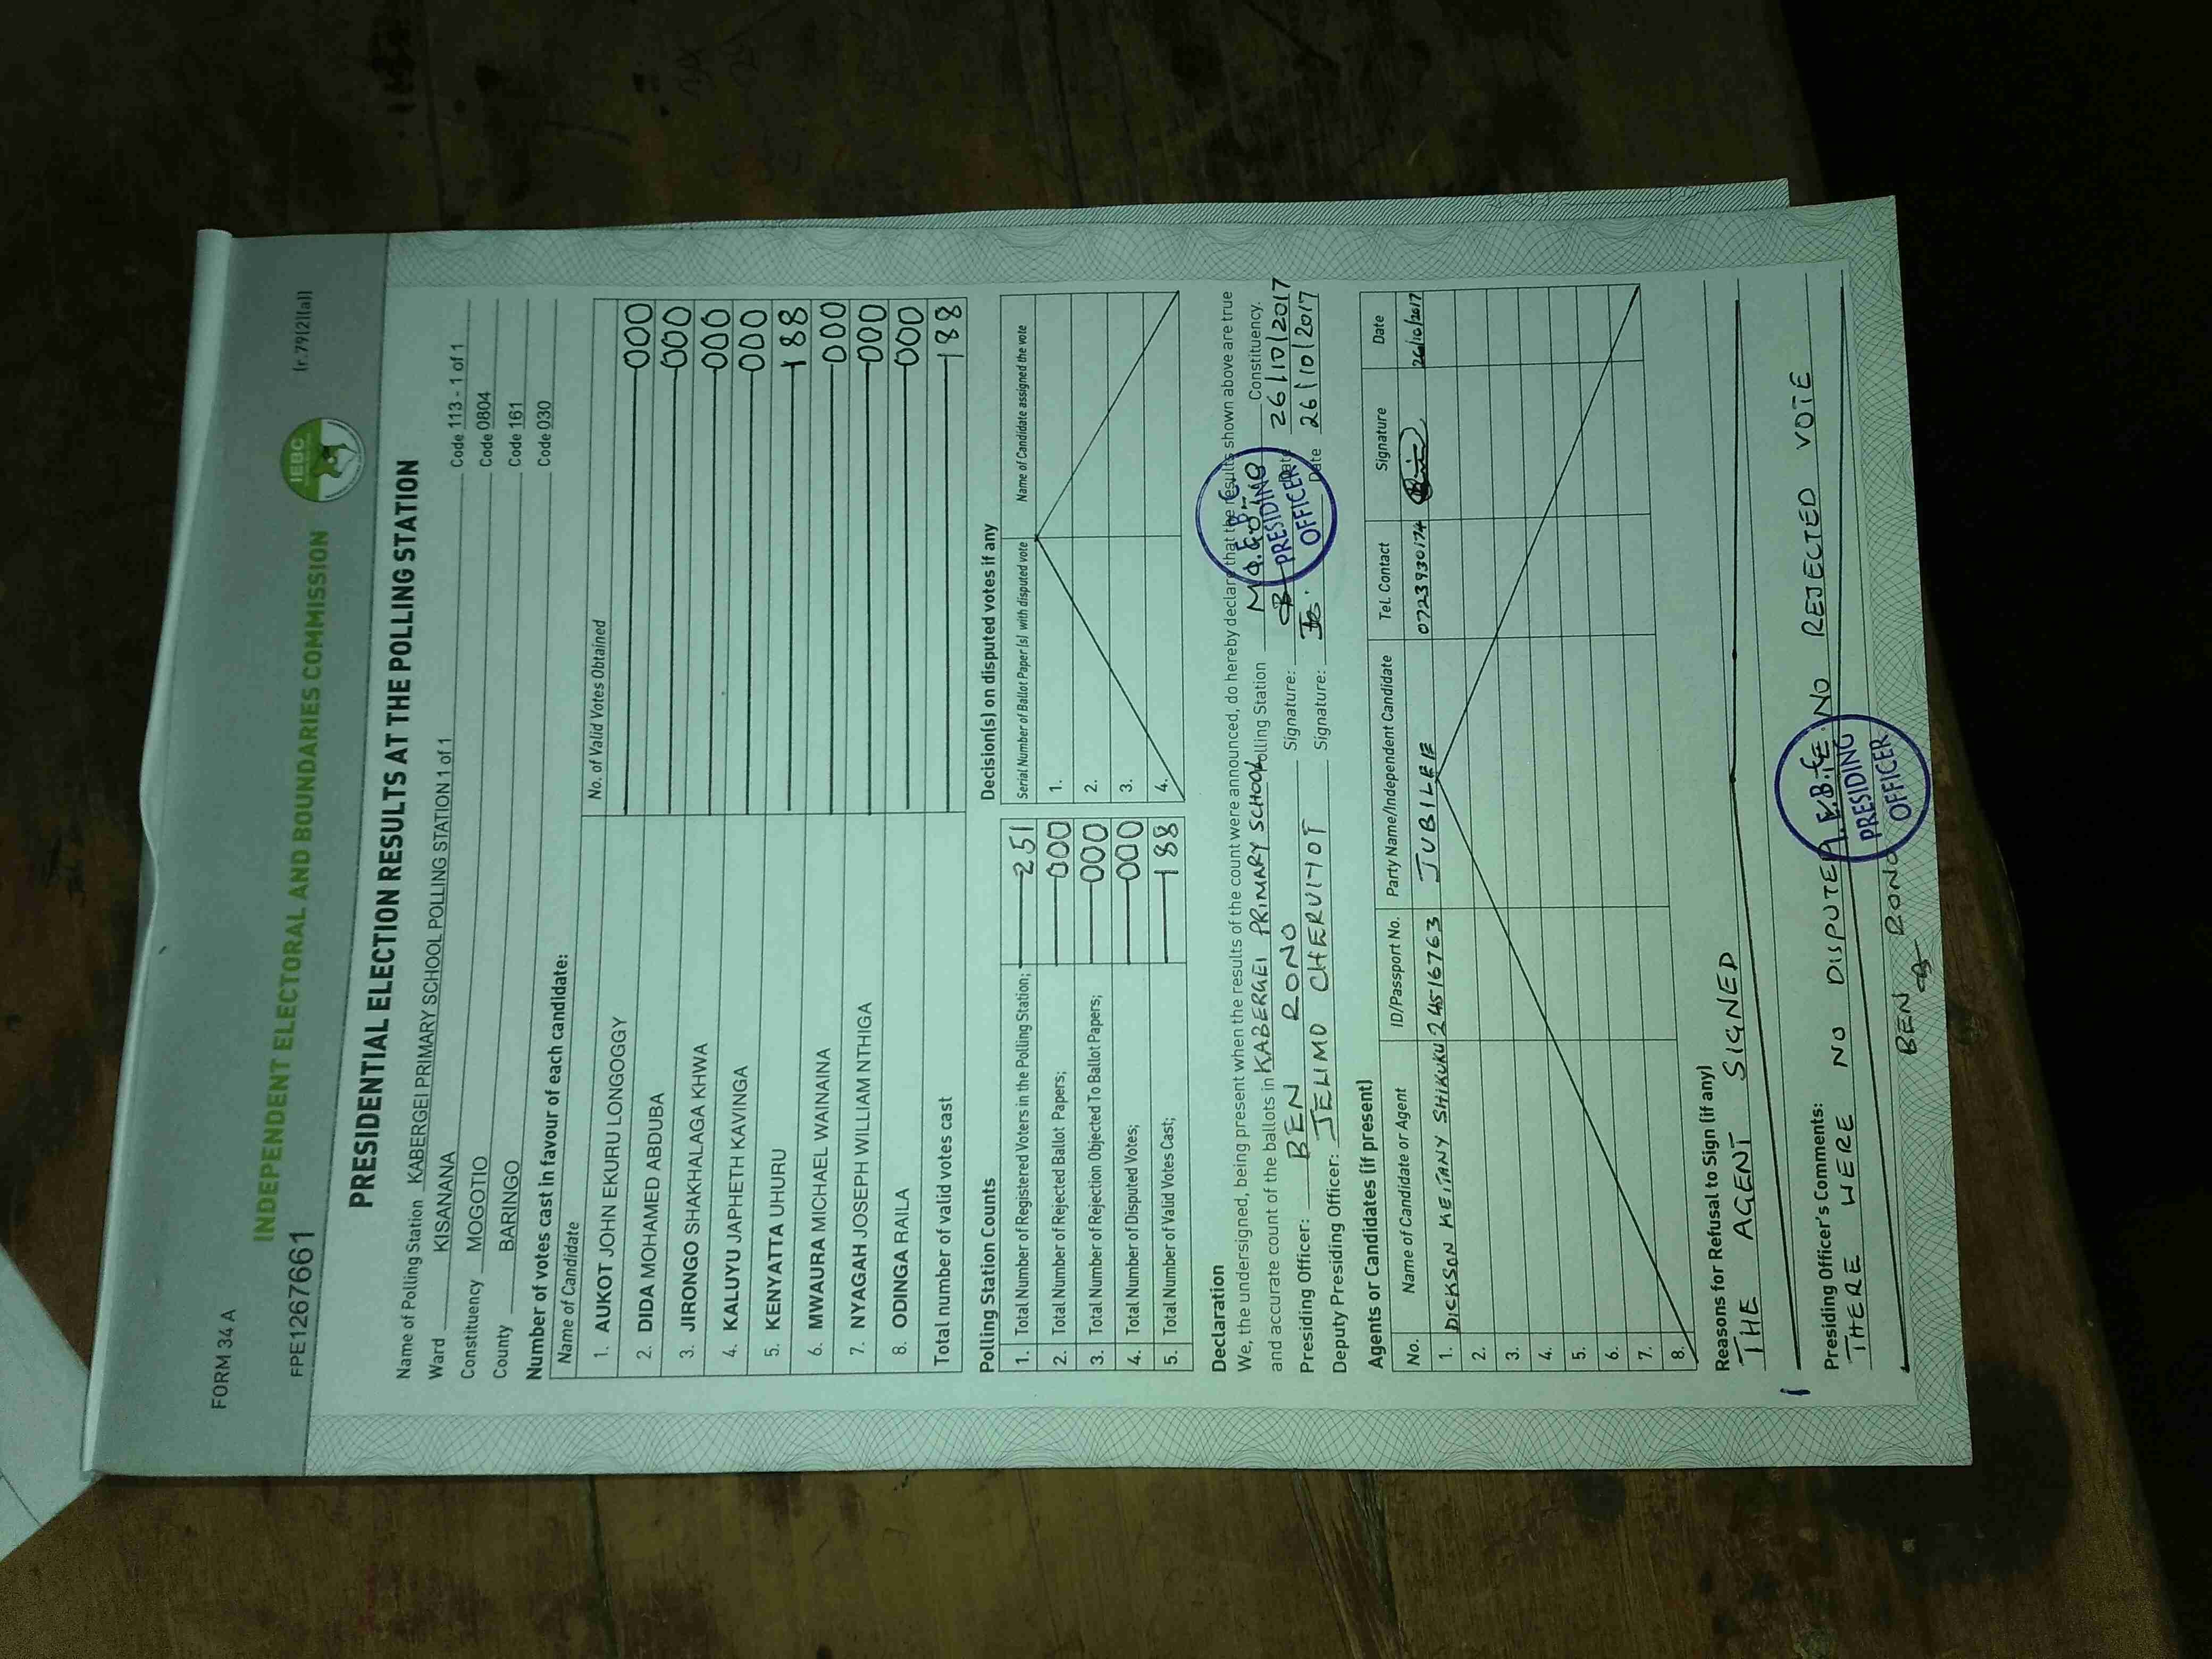 FORM 34 A
INDEPENDENT ELECTORAL AND BOUNDARIES COMMISSION
IEBC
(r.79(2)(a))
FPE1267661
PRESIDENTIAL ELECTION RESULTS AT THE POLLING STATION
Name of Polling Station KABERGEI PRIMARY SCHOOL POLLING STATION 1 of 1 Code 113 - 1 of 1
Ward KISANANA Code 0804
Constituency MOGOTIO Code 161
County BARINGO Code 030
Number of votes cast in favour of each candidate:
Name of Candidate No. of Valid Votes Obtained
1. AUKOT JOHN EKURU LONGOGGY 000
2. DIDA MOHAMED ABDUBA 000
3. JIRONGO SHAKHALAGA KHWA 000
4. KALUYU JAPHETH KAVINGA 000
5. KENYATTA UHURU 188
6. MWAURA MICHAEL WAINAINA 000
7. NYAGAH JOSEPH WILLIAM NTHIGA 000
8. ODINGA RAILA 000
Total number of valid votes cast 188
Polling Station Counts
1. Total Number of Registered Voters in the Polling Station; 251
2. Total Number of Rejected Ballot Papers; 000
3. Total Number of Rejection Objected To Ballot Papers; 000
4. Total Number of Disputed Votes; 000
5. Total Number of Valid Votes Cast; 188
Decision(s) on disputed votes if any
Serial Number of Ballot Paper(s) with disputed vote Name of Candidate assigned the vote
1.
2.
3.
4.
Declaration
We, the undersigned, being present when the results of the count were announced, do hereby declare that the results shown above are true
and accurate count of the ballots in KABERGEI PRIMARY SCHOOL Polling Station MOGOTIO Constituency.
Presiding Officer: BEN RONO Signature: Date 26/10/2017
Deputy Presiding Officer: JELIMO CHERUIYOT Signature: Date 26/10/2017
I.E.B.C.
PRESIDING
OFFICER
Agents or Candidates (if present)
No. Name of Candidate or Agent ID/Passport No. Party Name/Independent Candidate Tel. Contact Signature Date
1. DICKSON KEITANY SHIKUKU 24516763 JUBILEE 0723930174 26/10/2017
2.
3.
4.
5.
6.
7.
8.
Reasons for Refusal to Sign (if any)
THE AGENT SIGNED
Presiding Officer's Comments:
THERE WERE NO DISPUTED NO REJECTED VOTE
I.E.B.C.
PRESIDING
OFFICER
BEN RONO